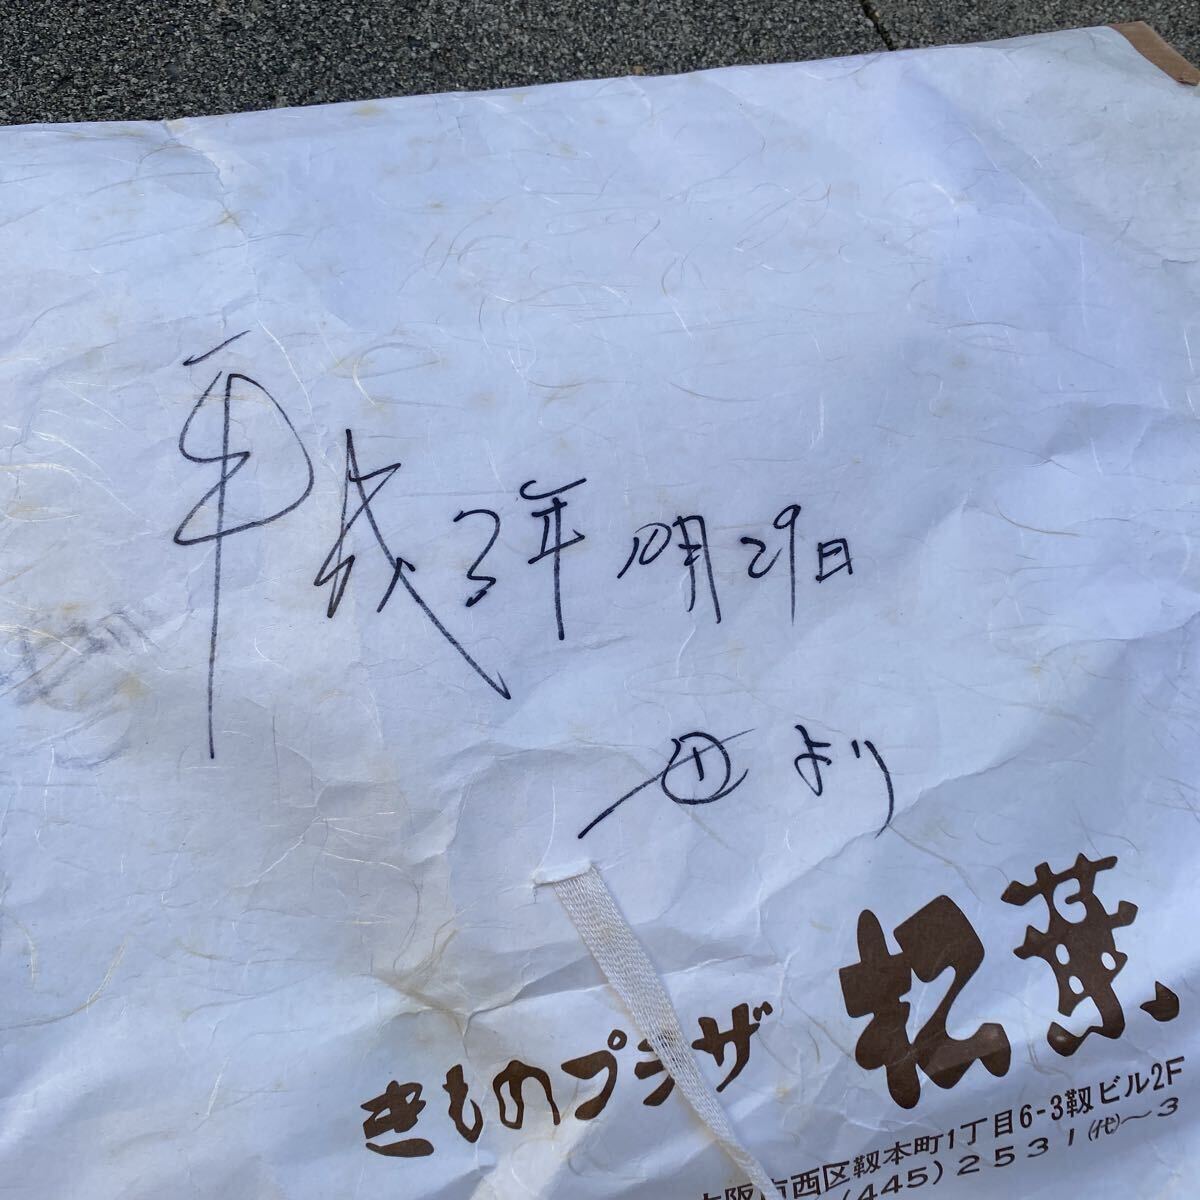 平成3年10月29日
母より
きものプラザ 松葉
大阪市西区靱本町1丁目6-3靱ビル2F
(445)2531㈹〜3